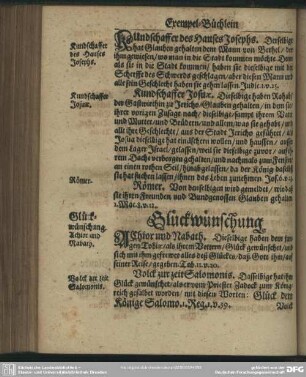 Exempel-Büchlein
Kundschaffer
des Hauses
Josephs.
Kundschaffer des Hauses Josephs. Dieselbige
hat Glauben gehalten dem Mann von Bethel, der
ihm gewiesen, wo man in die Stadt kommen möchte. Denn
als sie in die Stadt kommen, haben sie dieselbige mit der
Scherffe des Schwerds geschlagen, aber diesen Mann und
alle sein Geschlecht haben sie gehen lassen, Judic. 1. v. 25.
Kundschaffer
Josuæ.
Kundschaffer Josuæ. Dieselbige haben Rahab
der Gastwirthin zu Jericho, Glauben gehalten, in dem sie
ihrer vorigen Zusag nach, dieselbige sampt ihrem Vater
und Mutter, und Brüdern, und allem, was sie gehabt, und
alle ihre Geschlechte, aus der Stadt Jericho geführet, als
Josua dieselbige hat einreissen wollen, und haussen, ausser
dem Lager Israel, gelassen, weil sie dieselbige zuvor, auff
rem Dache verborgen gehalten, und nachmals zum Fenster
an einem rothen Seil hinab gelassen, da der König daselbst
sie hat suchen lassen,
Römer.
Römer. Von denselbigen wird gemeldet, wie
sie ihren Freunden und Bundgenossen Glauben gehalten
Glück-
wünschung.
Achior und
Nabath.
Glückwünschung
Achior und Nabath. Dieselbige haben dem
gen Tobiæ, als ihrem Vettern, Glück gewünschet, und
sich mit ihm gefrewet alles des Glückes, das Gott ihm
seiner Reise, gegeben, Tob. 11. v. 20.
Volck zur zeit
Salomonis.
Volck zur zeit Salomonis. Dasselbige hat ihm
Glück gewünschet, als er vom Priester Zadock zum König
reich gesalbet worden, mit diesen Worten: Glück dem
Könige Salomo, 1. Reg. 1. v. 39.
Volck